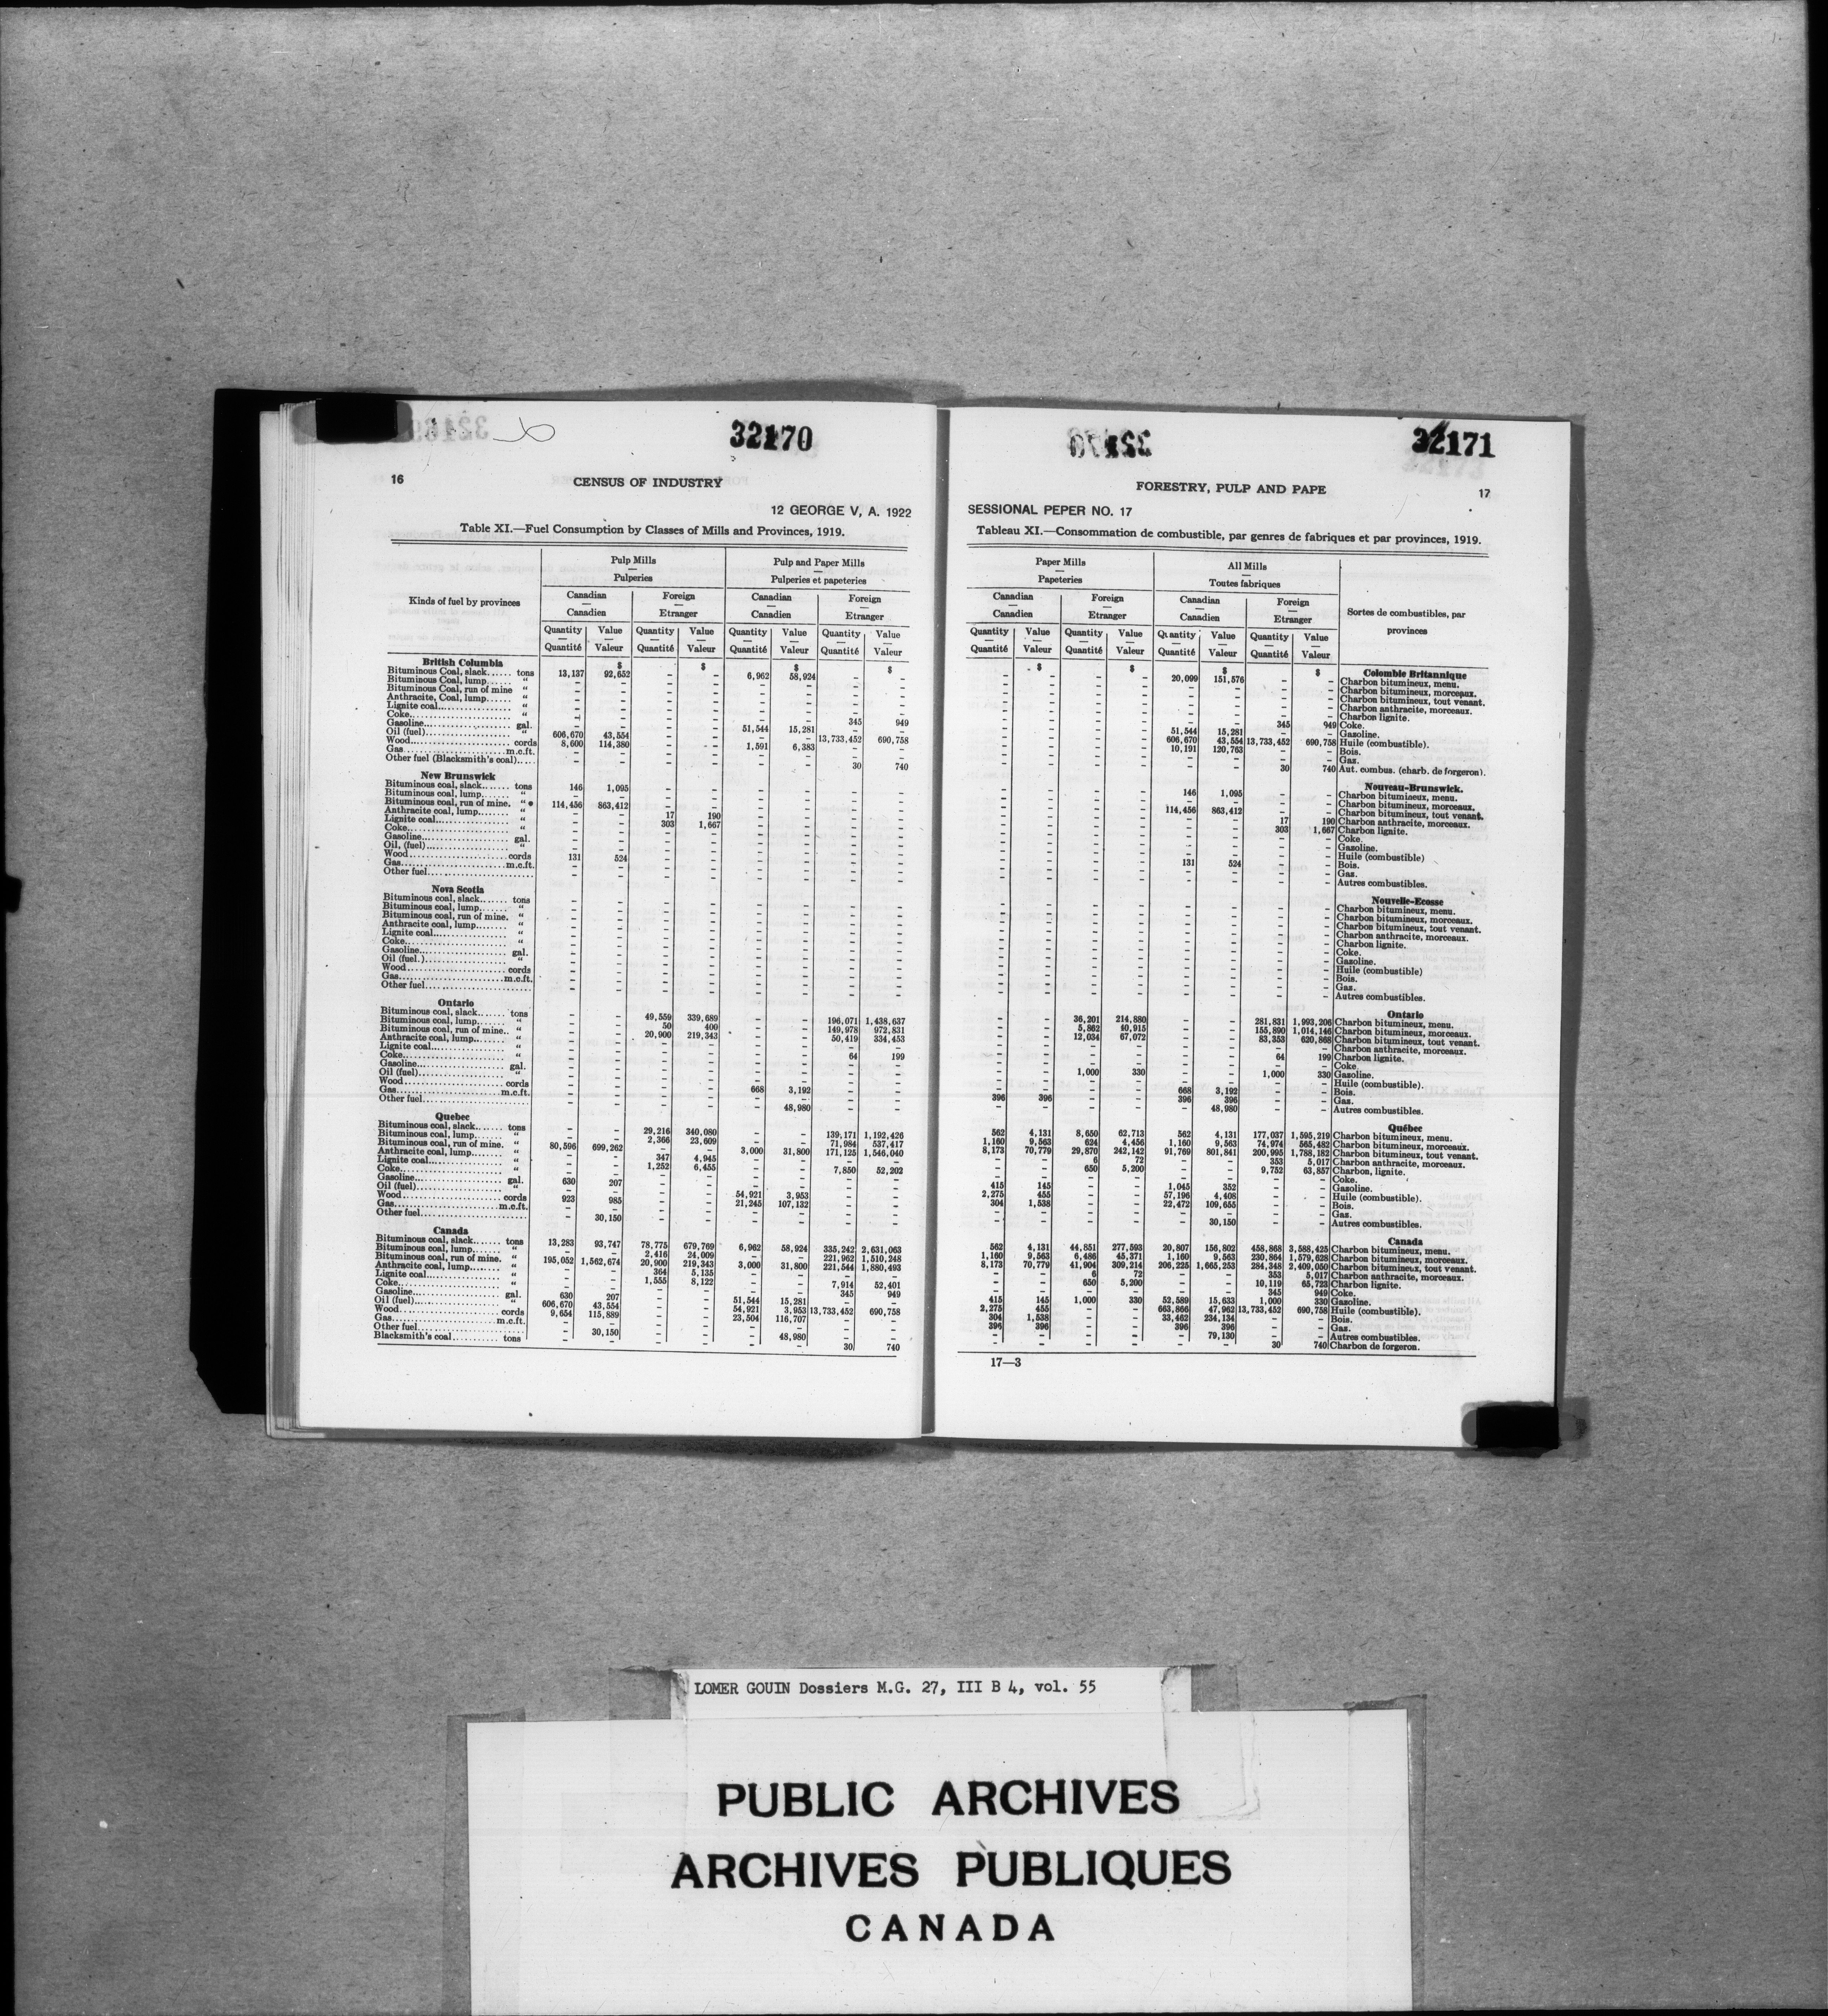 32170
16
CENSUS OF INDUSTRY
12 GEORGE V, A. 1922
Table XI.—Fuel Consumption by Classes of Mills and Provinces, 1919.
Kinds of fuel by provinces
Pulp Mills — Pulperies
Pulp and Paper Mills — Pulperies et papeteries
Canadian — Canadien Foreign — Etranger Canadian — Canadien Foreign — Etranger
Quantity Value Quantity Value Quantity Value Quantity Value
— — — — — — — —
Quantité Valeur Quantité Valeur Quantité Valeur Quantité Valeur
$ $ $ $
British Columbia
Bituminous Coal, slack...... tons 13,137 92,652 – – 6,962 58,924 – –
Bituminous Coal, lump...... " – – – – – – – –
Bituminous Coal, run of mine " – – – – – – – –
Anthracite, Coal, lump...... " – – – – – – – –
Lignite coal........ " – – – – – – – –
Coke........ " – – – – – – 345 949
Gasoline........ gal. – – – – 51,544 15,281 – –
Oil (fuel)........ " 606,670 43,554 – – – – 13,733,452 690,758
Wood........ cords 8,600 114,380 – – 1,591 6,383 – –
Gas........ m.c.ft. – – – – – – – –
Other fuel (Blacksmith's coal)..... – – – – – – 30 740
New Brunswick
Bituminous coal, slack...... tons 146 1,095 – – – – – –
Bituminous coal, lump...... " – – – – – – – –
Bituminous coal, run of mine. " 114,456 863,412 – – – – – –
Anthracite coal, lump...... " – – 17 190 – – – –
Lignite coal........ " – – 303 1,667 – – – –
Coke........ " – – – – – – – –
Gasoline........ gal. – – – – – – – –
Oil, (fuel)........ " – – – – – – – –
Wood........ cords 131 524 – – – – – –
Gas........ m.c.ft. – – – – – – – –
Other fuel........ – – – – – – – –
Nova Scotia
Bituminous coal, slack...... tons – – – – – – – –
Bituminous coal, lump...... " – – – – – – – –
Bituminous coal, run of mine. " – – – – – – – –
Anthracite coal, lump...... " – – – – – – – –
Lignite coal........ " – – – – – – – –
Coke........ " – – – – – – – –
Gasoline........ gal. – – – – – – – –
Oil (fuel.)........ " – – – – – – – –
Wood........ cords – – – – – – – –
Gas........ m.c.ft. – – – – – – – –
Other fuel........ – – – – – – – –
Ontario
Bituminous coal, slack...... tons – – 49,559 339,689 – – 196,071 1,438,637
Bituminous coal, lump...... " – – 50 400 – – 149,978 972,831
Bituminous coal, run of mine.. " – – 20,900 219,343 – – 50,419 334,453
Anthracite coal, lump...... " – – – – – – – –
Lignite coal........ " – – – – – – 64 199
Coke........ " – – – – – – – –
Gasoline........ gal. – – – – – – – –
Oil (fuel)........ " – – – – – – – –
Wood........ cords – – – – 668 3,192 – –
Gas........ m.c.ft. – – – – – – – –
Other fuel........ – – – – – 48,980 – –
Quebec
Bituminous coal, slack...... tons – – 29,216 340,080 – – 139,171 1,192,426
Bituminous coal, lump...... " – – 2,366 23,609 – – 71,984 537,417
Bituminous coal, run of mine. " 80,596 699,262 – – 3,000 31,800 171,125 1,546,040
Anthracite coal, lump...... " – – 347 4,945 – – – –
Lignite coal........ " – – 1,252 6,455 – – 7,850 52,202
Coke........ " – – – – – – – –
Gasoline........ gal. 630 207 – – – – – –
Oil (fuel)........ " – – – – 54,921 3,953 – –
Wood........ cords 923 985 – – 21,245 107,132 – –
Gas........ m.c.ft. – – – – – – – –
Other fuel........ – 30,150 – – – – – –
Canada
Bituminous coal, slack...... tons 13,283 93,747 78,775 679,769 6,962 58,924 335,242 2,631,063
Bituminous coal, lump...... " – – 2,416 24,009 – – 221,962 1,510,248
Bituminous coal, run of mine. " 195,052 1,562,674 20,900 219,343 3,000 31,800 221,544 1,880,493
Anthracite coal, lump...... " – – 364 5,135 – – – –
Lignite coal........ " – – 1,555 8,122 – – 7,914 52,401
Coke........ " – – – – – – 345 949
Gasoline........ gal. 630 207 – – 51,544 15,281 – –
Oil (fuel)........ " 606,670 43,554 – – 54,921 3,953 13,733,452 690,758
Wood........ cords 9,654 115,889 – – 23,504 116,707 – –
Gas........ m.c.ft. – – – – – – – –
Other fuel........ – 30,150 – – – 48,980 – –
Blacksmith's coal........ tons – – – – – – 30 740
32171
FORESTRY, PULP AND PAPE
17
SESSIONAL PEPER NO. 17
Tableau XI.—Consommation de combustible, par genres de fabriques et par provinces, 1919.
Paper Mills — Papeteries
All Mills — Toutes fabriques
Sortes de combustibles, par provinces
Canadian — Canadien Foreign — Etranger Canadian — Canadien Foreign — Etranger
Quantity Value Quantity Value Quantity Value Quantity Value
— — — — — — — —
Quantité Valeur Quantité Valeur Quantité Valeur Quantité Valeur
$ $ $ $
Colombie Britannique
– – – – 20,099 151,576 – – Charbon bitumineux, menu.
– – – – – – – – Charbon bitumineux, morceaux.
– – – – – – – – Charbon bitumineux, tout venant.
– – – – – – – – Charbon anthracite, morceaux.
– – – – – – – – Charbon lignite.
– – – – – – 345 949 Coke.
– – – – 51,544 15,281 – – Gasoline.
– – – – 606,670 43,554 13,733,452 690,758 Huile (combustible).
– – – – 10,191 120,763 – – Bois.
– – – – – – – – Gas.
– – – – – – 30 740 Aut. combus. (charb. de forgeron).
Nouveau-Brunswick.
– – – – 146 1,095 – – Charbon bitumineux, menu.
– – – – – – – – Charbon bitumineux, morceaux.
– – – – 114,456 863,412 – – Charbon bitumineux, tout venant.
– – – – – – 17 190 Charbon anthracite, morceaux.
– – – – – – 303 1,667 Charbon lignite.
– – – – – – – – Coke.
– – – – – – – – Gasoline.
– – – – – – – – Huile (combustible)
– – – – 131 524 – – Bois.
– – – – – – – – Gas.
– – – – – – – – Autres combustibles.
Nouvelle-Ecosse
– – – – – – – – Charbon bitumineux, menu.
– – – – – – – – Charbon bitumineux, morceaux.
– – – – – – – – Charbon bitumineux, tout venant.
– – – – – – – – Charbon anthracite, morceaux.
– – – – – – – – Charbon lignite.
– – – – – – – – Coke.
– – – – – – – – Gasoline.
– – – – – – – – Huile (combustible)
– – – – – – – – Bois.
– – – – – – – – Gas.
– – – – – – – – Autres combustibles.
Ontario
– – 36,201 214,880 – – 281,831 1,993,206 Charbon bitumineux, menu.
– – 5,862 40,915 – – 155,890 1,014,146 Charbon bitumineux, morceaux.
– – 12,034 67,072 – – 83,353 620,868 Charbon bitumineux, tout venant.
– – – – – – – – Charbon anthracite, morceaux.
– – – – – – 64 199 Charbon lignite.
– – – – – – – – Coke.
– – 1,000 330 – – 1,000 330 Gasoline.
– – – – – – – – Huile (combustible).
– – – – 668 3,192 – – Bois.
396 396 – – 396 396 – – Gas.
– – – – – 48,980 – – Autres combustibles.
Québec
562 4,131 8,650 62,713 562 4,131 177,037 1,595,219 Charbon bitumineux, menu.
1,160 9,563 624 4,456 1,160 9,563 74,974 565,482 Charbon bitumineux, morceaux.
8,173 70,779 29,870 242,142 91,769 801,841 200,995 1,788,182 Charbon bitumineux, tout venant.
– – 6 72 – – 353 5,017 Charbon anthracite, morceaux.
– – 650 5,200 – – 9,752 63,857 Charbon, lignite.
– – – – – – – – Coke.
415 145 – – 1,045 352 – – Gasoline.
2,275 455 – – 57,196 4,408 – – Huile (combustible).
304 1,538 – – 22,472 109,655 – – Bois.
– – – – – – – – Gas.
– – – – – 30,150 – – Autres combustibles.
Canada
562 4,131 44,851 277,593 20,807 156,802 458,868 3,588,425 Charbon bitumineux, menu.
1,160 9,563 6,486 45,371 1,160 9,563 230,864 1,579,628 Charbon bitumineux, morceaux.
8,173 70,779 41,904 309,214 206,225 1,665,253 284,348 2,409,050 Charbon bitumineux, tout venant.
– – 6 72 – – 353 5,017 Charbon anthracite, morceaux.
– – 650 5,200 – – 10,119 65,723 Charbon lignite.
– – – – – – 345 949 Coke.
415 145 1,000 330 52,589 15,633 1,000 330 Gasoline.
2,275 455 – – 663,866 47,962 13,733,452 690,758 Huile (combustible).
304 1,538 – – 33,462 234,134 – – Bois.
396 396 – – 396 396 – – Gas.
– – – – – 79,130 – – Autres combustibles.
– – – – – – 30 740 Charbon de forgeron.
17—3
LOMER GOUIN Dossiers M.G. 27, III B 4, vol. 55
PUBLIC ARCHIVES
ARCHIVES PUBLIQUES
CANADA